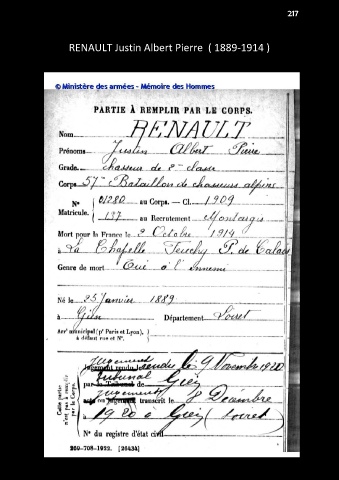 217
RENAULT Justin Albert Pierre ( 1889-1914 )
© Ministère des armées - Mémoire des Hommes
PARTIE À REMPLIR PAR LE CORPS.
Nom RENAULT
Prénoms Justin Albert Pierre
Grade chasseur de 2e classe
Corps 57me Bataillon de chasseurs alpins
N° 01280 au Corps. — Cl. 1909
Matricule. 137 au Recrutement Montargis
Mort pour la France le 2 Octobre 1914
à La Chapelle Feuchy P. de Calais
Genre de mort Tué à l'ennemi
Né le 25 Janvier 1889
à Gien Département Loiret
Arrt municipal (pr Paris et Lyon), à défaut rue et N°.
Cette partie n'est pas à remplir par le Corps.
Jugement rendu le 9 Novembre 1920
par le Tribunal de Gien
jugement transcrit le 8 Décembre
1920 à Gien (Loiret)
N° du registre d'état civil
269-708-1922. [26434]